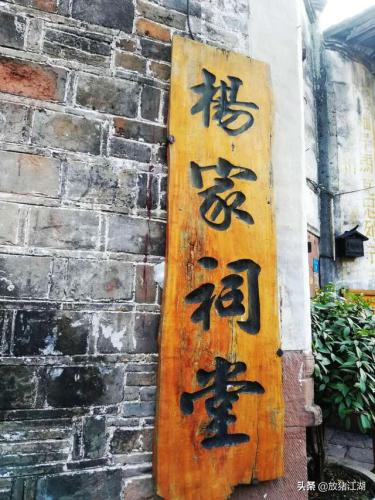 楊家祠堂
头条 @放猪江湖